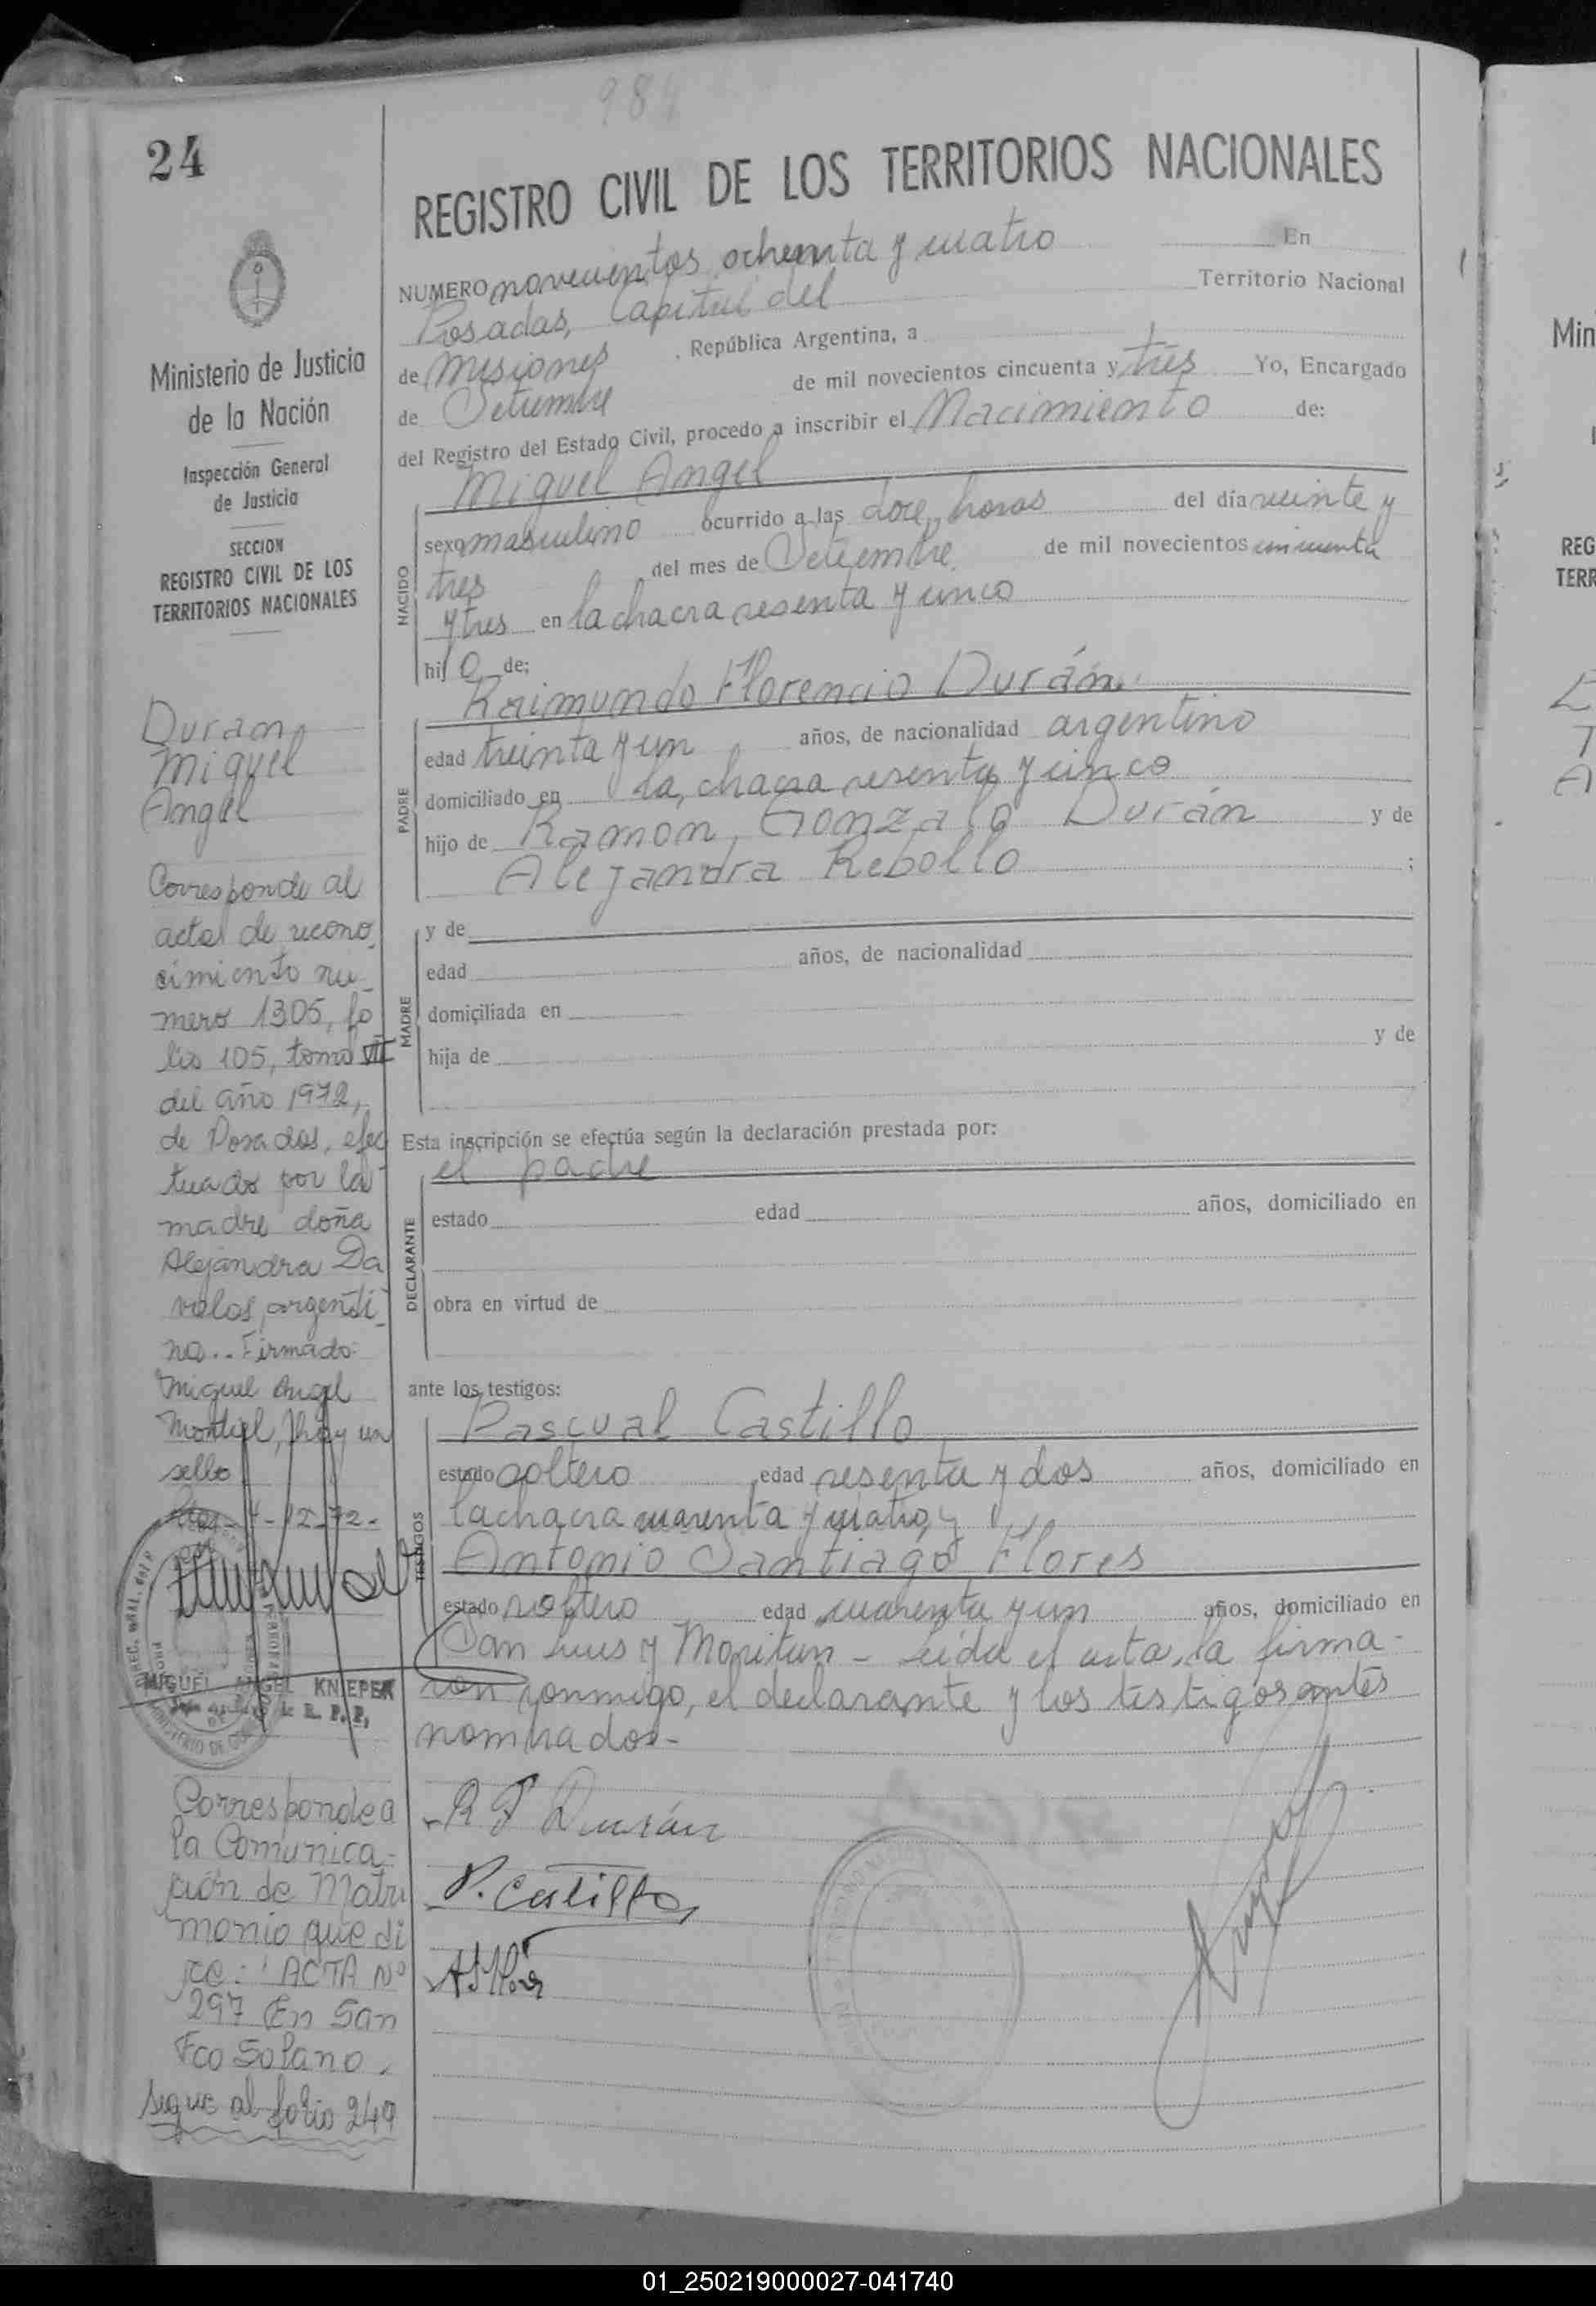 984
24
REGISTRO CIVIL DE LOS TERRITORIOS NACIONALES
NUMERO novecientos ochenta y cuatro En
Posadas, Capital del Territorio Nacional
de Misiones , República Argentina, a
de Setiembre de mil novecientos cincuenta y tres Yo, Encargado
del Registro del Estado Civil, procedo a inscribir el Nacimiento de:
Miguel Angel
NACIDO
sexo masculino ocurrido a las doce horas del día veinte y
tres del mes de Setiembre de mil novecientos cincuenta
y tres en la chacra sesenta y cinco
hijo de:
Raimundo Florencio Durán
PADRE
edad treinta y un años, de nacionalidad argentino
domiciliado en la, chacra sesenta y cinco
hijo de Ramon Gonzalo Durán y de
Alejandra Rebollo ;
MADRE
y de
edad años, de nacionalidad
domiciliada en
hija de y de
Esta inscripción se efectúa según la declaración prestada por:
el padre
DECLARANTE
estado edad años, domiciliado en
obra en virtud de
ante los testigos:
Pascual Castillo
TESTIGOS
estado soltero edad sesenta y dos años, domiciliado en
la chacra cuarenta y cuatro, y
Antonio Santiago Flores
estado soltero edad cuarenta y un años, domiciliado en
San Luis y - Leida el acta, la firma-
ron conmigo, el declarante y los testigos antes
nombrados-
R F Durán
P. Castillo
Ministerio de Justicia
de la Nación
Inspección General
de Justicia
SECCION
REGISTRO CIVIL DE LOS
TERRITORIOS NACIONALES
Duran
Miguel
Angel
Corresponde al
acta de recono
cimiento nu-
mero 1305, fo
lio 105, tomo VII
del año 1972,
de Posadas, efec
tuado por la
madre doña
Alejandra Da
valos, argenti-
na.. Firmado:
Miguel Angel
Montiel, Hay un
sello
4-12-72-
MIGUEL ANGEL KNIEPER
Corresponde a
la Comunica-
ción de Matri
monio que di
ce: ACTA Nº
297 En San
Fco Solano.
sigue al folio 249
Min
REG
TERR
01_250219000027-041740